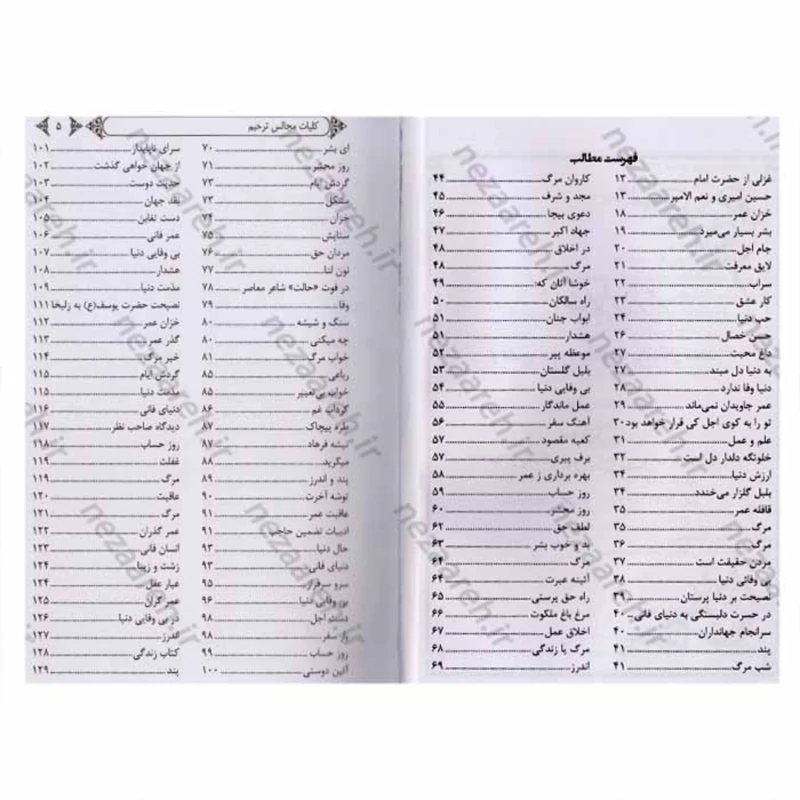 فهرست مطالب
غزلی از حضرت امام ۱۳
حسین امیری و نعم الامیر ۱۳
خزان عمر ۱۸
بشر بسیار می‌میرد ۱۹
جام اجل ۲۰
لایق معرفت ۲۱
سراب ۲۲
کار عشق ۲۳
حب دنیا ۲۴
حسن خصال ۲۶
داغ محبت ۲۷
به دنیا دل مبند ۲۷
دنیا وفا ندارد ۲۸
عمر جاویدان نمی‌ماند ۲۹
تو را به کوی اجل کی قرار خواهد بود ۳۰
علم و عمل ۳۱
خلوتگه دلدار دل است ۳۲
ارزش دنیا ۳۴
بلبل گلزار می‌خندد ۳۴
قافله عمر ۳۵
مرگ ۳۵
مرگ ۳۶
مردن حقیقت است ۳۷
بی وفائی دنیا ۳۸
نصیحت بر دنیا پرستان ۳۹
در حسرت دلبستگی به دنیای فانی ۴۰
سرانجام جهانداران ۴۰
پند ۴۱
شب مرگ ۴۱
کاروان مرگ ۴۴
مجد و شرف ۴۵
دعوی بیجا ۴۶
جهاد اکبر ۴۷
در اخلاق ۴۸
مرگ ۴۸
خوشا آنان که: ۴۹
راه سالکان ۵۰
ابواب جنان ۵۱
هشدار ۵۱
موعظه پیر ۵۲
بلبل گلستان ۵۳
بی وفایی دنیا ۵۴
عمل ماندگار ۵۵
آهنگ سفر ۵۶
کعبه مقصود ۵۷
برف پیری ۵۷
بهره برداری ز عمر ۵۸
روز حساب ۵۹
روز محشر ۶۰
لطف حق ۶۲
بد و خوب بشر ۶۳
مرگ ۶۴
آئینه عبرت ۶۴
راه حق پرستی ۶۵
مرغ باغ ملکوت ۶۶
اخلاق عمل ۶۷
مرگ یا زندگی ۶۸
اندرز ۶۹
کلیات مجالس ترحیم ۵
ای بشر ۷۰
روز محشر ۷۱
گردش ایام ۷۳
مشکل ۷۳
خزان ۷۴
ستایش ۷۵
مردان حق ۷۶
نون لنا ۷۷
در فوت «حالت» شاعر معاصر ۷۸
وفا ۷۹
سنگ و شیشه ۸۰
چه میکنی ۸۰
خواب مرگ ۸۱
رباعی ۸۵
خواب بی‌تعبیر ۸۵
گرداب غم ۸۶
طره پیچاک ۸۷
تیشه فرهاد ۸۷
میگرید ۸۸
پند و اندرز ۸۹
توشه آخرت ۹۰
عاقبت عمر ۹۱
ادبیات تضمین حاجب ۹۱
حال دنیا ۹۳
دنیای فانی ۹۳
سرو سرفراز ۹۵
بی وفایی دنیا ۹۶
دست اجل ۹۸
سفر ۹۸
روز حساب ۹۹
آئین دوستی ۱۰۰
سرای ناپایدار ۱۰۱
از جهان خواهی گذشت ۱۰۲
حدیث دوست ۱۰۳
نقد جهان ۱۰۴
دست تغابن ۱۰۵
عمر فانی ۱۰۶
بی وفایی دنیا ۱۰۷
هشدار ۱۰۸
مذمت دنیا ۱۰۹
نصیحت حضرت یوسف(ع) به زلیخا ۱۱۱
خزان عمر ۱۱۲
گذر عمر ۱۱۳
خبر مرگ ۱۱۴
گردش ایام ۱۱۵
مذمت دنیا ۱۱۵
دنیای فانی ۱۱۶
دیدگاه صاحب نظر ۱۱۷
روز حساب ۱۱۸
غفلت ۱۱۹
مرگ ۱۱۹
عاقبت ۱۲۰
مرگ ۱۲۱
عمر گذران ۱۲۲
انسان فانی ۱۲۳
زشت و زیبا ۱۲۴
عیار عقل ۱۲۴
عمر گران ۱۲۵
در بی وفایی دنیا ۱۲۶
اندرز ۱۲۷
کتاب زندگی ۱۲۸
پند ۱۲۹
nezaareh.ir